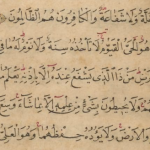 وَلَا شَفَاعَةٌ وَالْكَافِرُونَ هُمُ الظَّالِمُونَ
هُوَ الْحَيُّ الْقَيُّومُ لَا تَأْخُذُهُ سِنَةٌ وَلَا نَوْمٌ لَهُ مَا فِي
مَنْ ذَا الَّذِي يَشْفَعُ عِنْدَهُ إِلَّا بِإِذْنِهِ يَعْلَمُ
وَلَا يُحِيطُونَ بِشَيْءٍ مِنْ عِلْمِهِ إِلَّا بِمَا شَاءَ وَسِعَ
وَالْأَرْضَ وَلَا يَؤُدُهُ حِفْظُهُمَا وَهُوَ الْعَلِيُّ